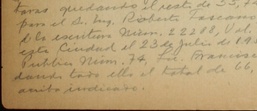 taras quedando el resto de 53, 7
por el S. Ing. Roberto Lascano
de la escritura Núm. 22218, Vol.
esta Ciudad el 23 de Julio de 19
Público Núm. 74, Lic. Francisco
dando todo ello el total de 66,
arriba indicado.